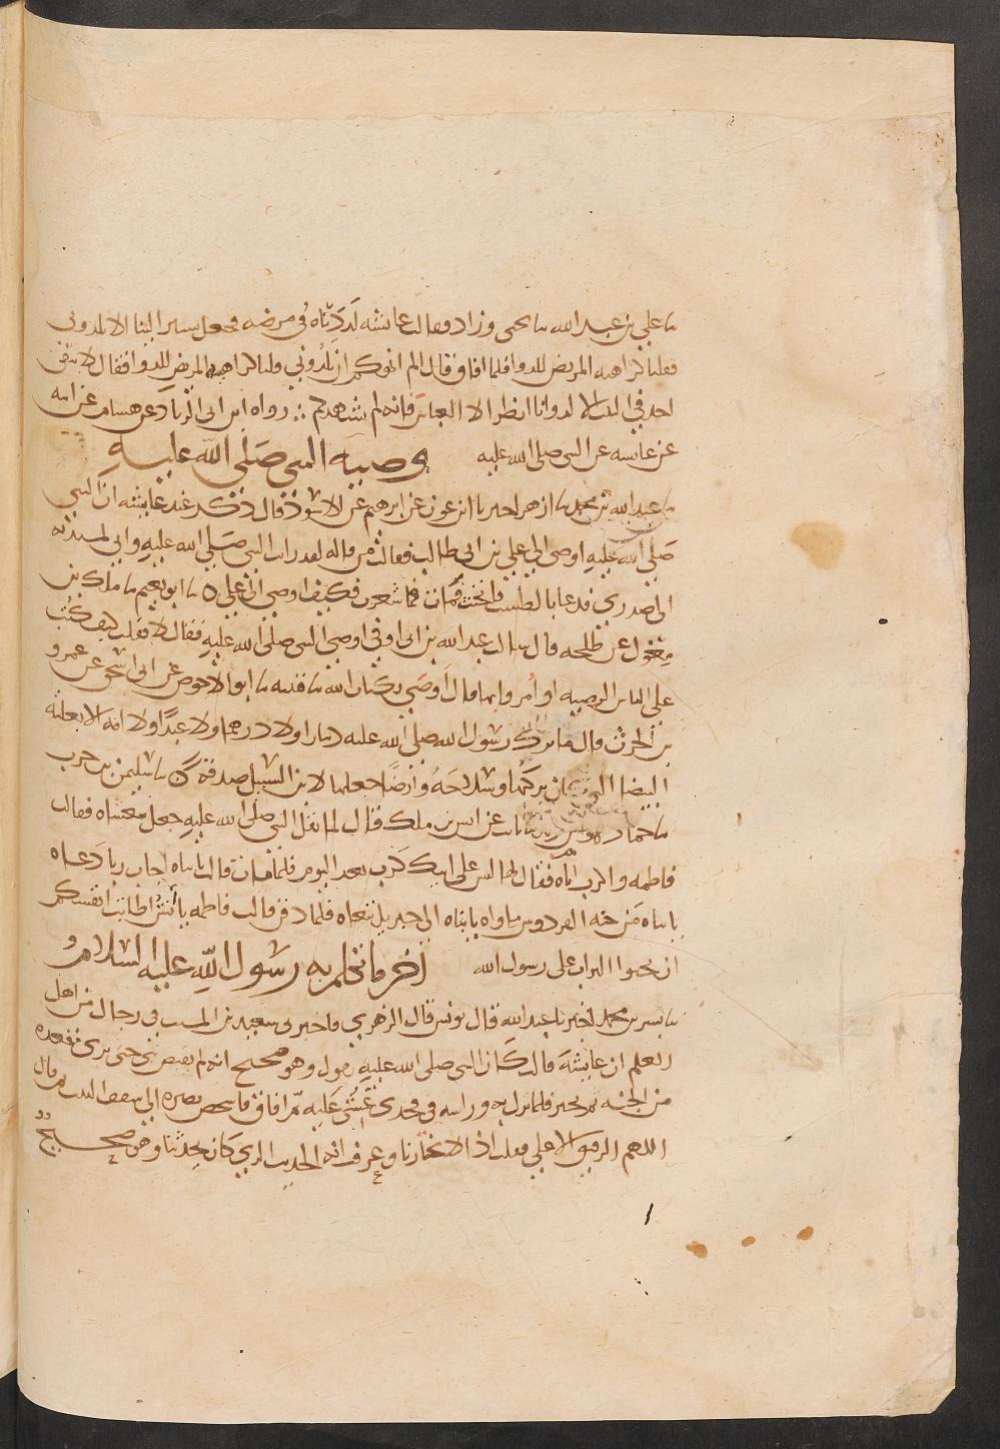 نا علي بن عبد الله نا يحيى وزاد وقالت عايشة لددناه في مرضه فجعل يشير الينا الا تلدوني
فقلنا كراهية المريض للدوا فلما افاق قال الم انهكم ان تلدوني قلنا كراهية المريض للدوا فقال لا يبقى
احد في البيت الا لد وانا انظر الا العباس فانه لم يشهدكم ∴ رواه ابن ابي الزناد عن هشام عن ابيه
عن عايشة عن النبي صلى الله عليه وصية النبي صلى الله عليه
نا عبد الله بن محمد نا ازهر اخبرنا ابن عون عن ابرهيم عن الاسود قال ذكر عند عايشة ان النبي
صلى الله عليه اوصى الى علي بن ابي طالب فقالت من قاله لقد رايت النبي صلى الله عليه واني لمسندته
الى صدري فدعا بالطست فانخنث فمات فما شعرت فكيف اوصى الى علي ه نا ابو نعيم نا ملك بن
مغول عن طلحة قال سالت عبد الله بن ابي اوفى اوصى النبي صلى الله عليه فقال لا فقلت كيف كتب
على الناس الوصية او امروا بها قال اوصى بكتاب الله نا قتيبة نا ابو الاحوص عن ابي اسحق عن عمرو
بن الحرث قال ما ترك رسول الله صلى الله عليه دينارا ولا درهما ولا عبدا ولا امة الا بغلته
البيضا التي كان يركبها وسلاحه وارضا جعلها لابن السبيل صدقة نا سليمن بن حرب
نا حماد عن ثابت عن انس بن ملك قال لما ثقل النبي صلى الله عليه جعل يتغشاه فقالت
فاطمة واكرب اباه فقال لها ليس على ابيك كرب بعد اليوم فلما مات قالت يا ابتاه اجاب ربا دعاه
يا ابتاه من جنة الفردوس ماواه يا ابتاه الى جبريل ننعاه فلما دفن قالت فاطمة يا انس اطابت انفسكم
ان تحثوا التراب على رسول الله اخر ما تكلم به رسول الله عليه السلام
نا بشر بن محمد اخبرنا عبد الله قال يونس قال الزهري فاخبرني سعيد بن المسيب في رجال من اهل
العلم ان عايشة قالت كان النبي صلى الله عليه يقول وهو صحيح انه لم يقبض نبي حتى يرى مقعده
من الجنة ثم يخير فلما نزل به وراسه في فخذي غشي عليه ثم افاق فاشخص بصره الى سقف البيت ثم قال
اللهم الرفيق الاعلى فقلت اذا لا يختارنا وعرفت انه الحديث الذي كان يحدثنا وهو صحيح